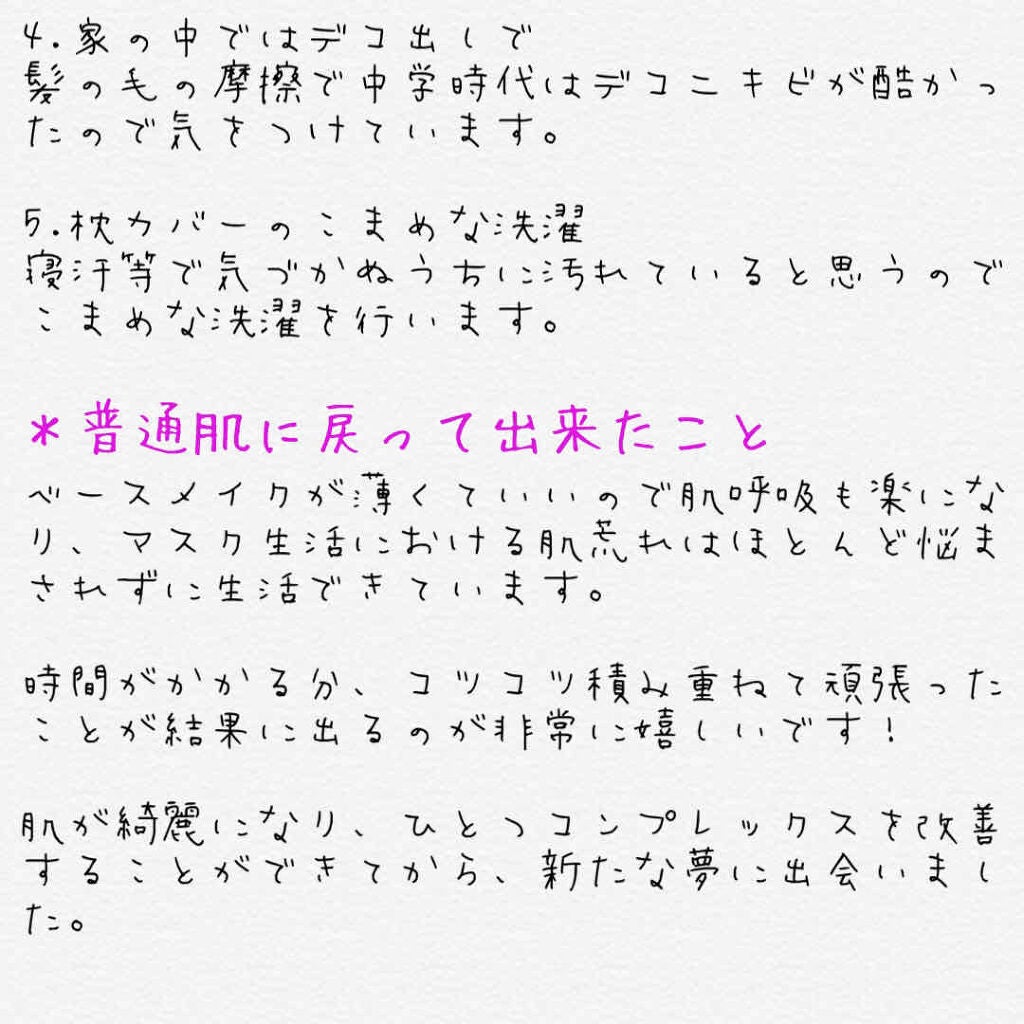 4.家の中ではデコ出しで
髪の毛の摩擦で中学時代はデコニキビが酷かっ
たので気をつけています。
5.枕カバーのこまめな洗濯
寝汗等で気づかぬうちに汚れていると思うので
こまめな洗濯を行います。
*普通肌に戻って出来たこと
ベースメイクが薄くていいので肌呼吸も楽にな
り、マスク生活における肌荒れはほとんど悩ま
されずに生活できています。
時間がかかる分、コツコツ積み重ねて頑張った
ことが結果に出るのが非常に嬉しいです！
肌が綺麗になり、ひとつコンプレックスを改善
することができてから、新たな夢に出会いまし
た。